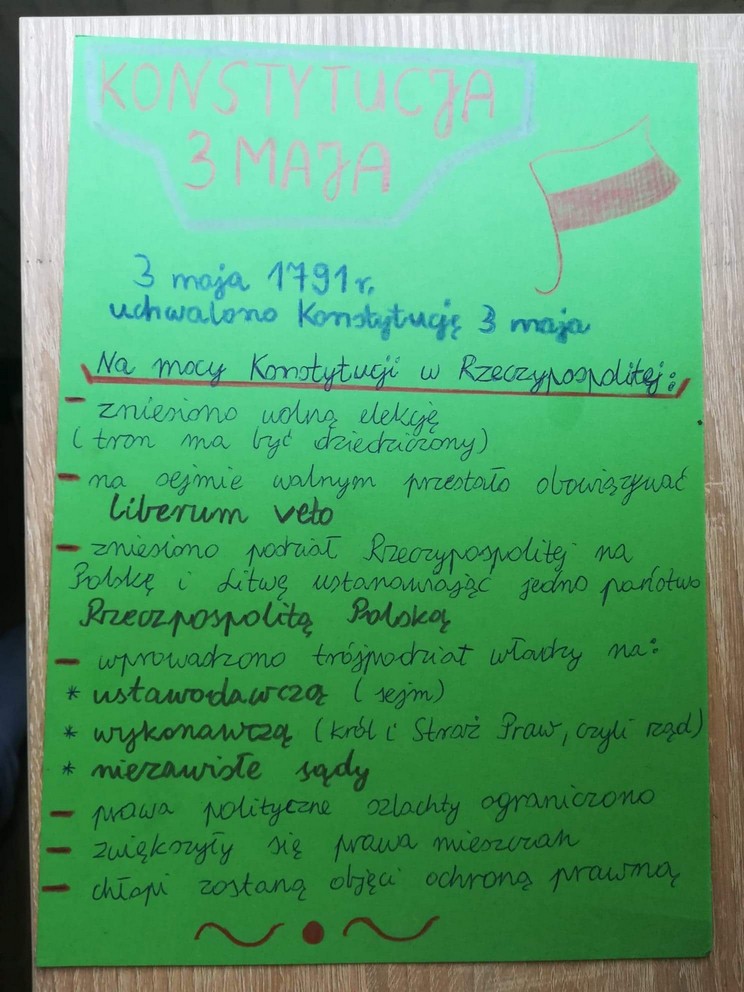 KONSTYTUCJA
3 MAJA
3 maja 1791 r.
uchwalono Konstytucję 3 maja
Na mocy Konstytucji w Rzeczypospolitej:
- zniesiono wolną elekcję
(tron ma być dziedziczony)
- na sejmie walnym przestało obowiązywać
liberum veto
- zniesiono podział Rzeczypospolitej na
Polskę i Litwę ustanawiając jedno państwo
Rzeczpospolitą Polską
- wprowadzono trójpodział władzy na:
* ustawodawczą (sejm)
* wykonawczą (król i Straż Praw, czyli rząd)
* niezawisłe sądy
- prawa polityczne szlachty ograniczono
- zwiększyły się prawa mieszczan
- chłopi zostaną objęci ochroną prawną